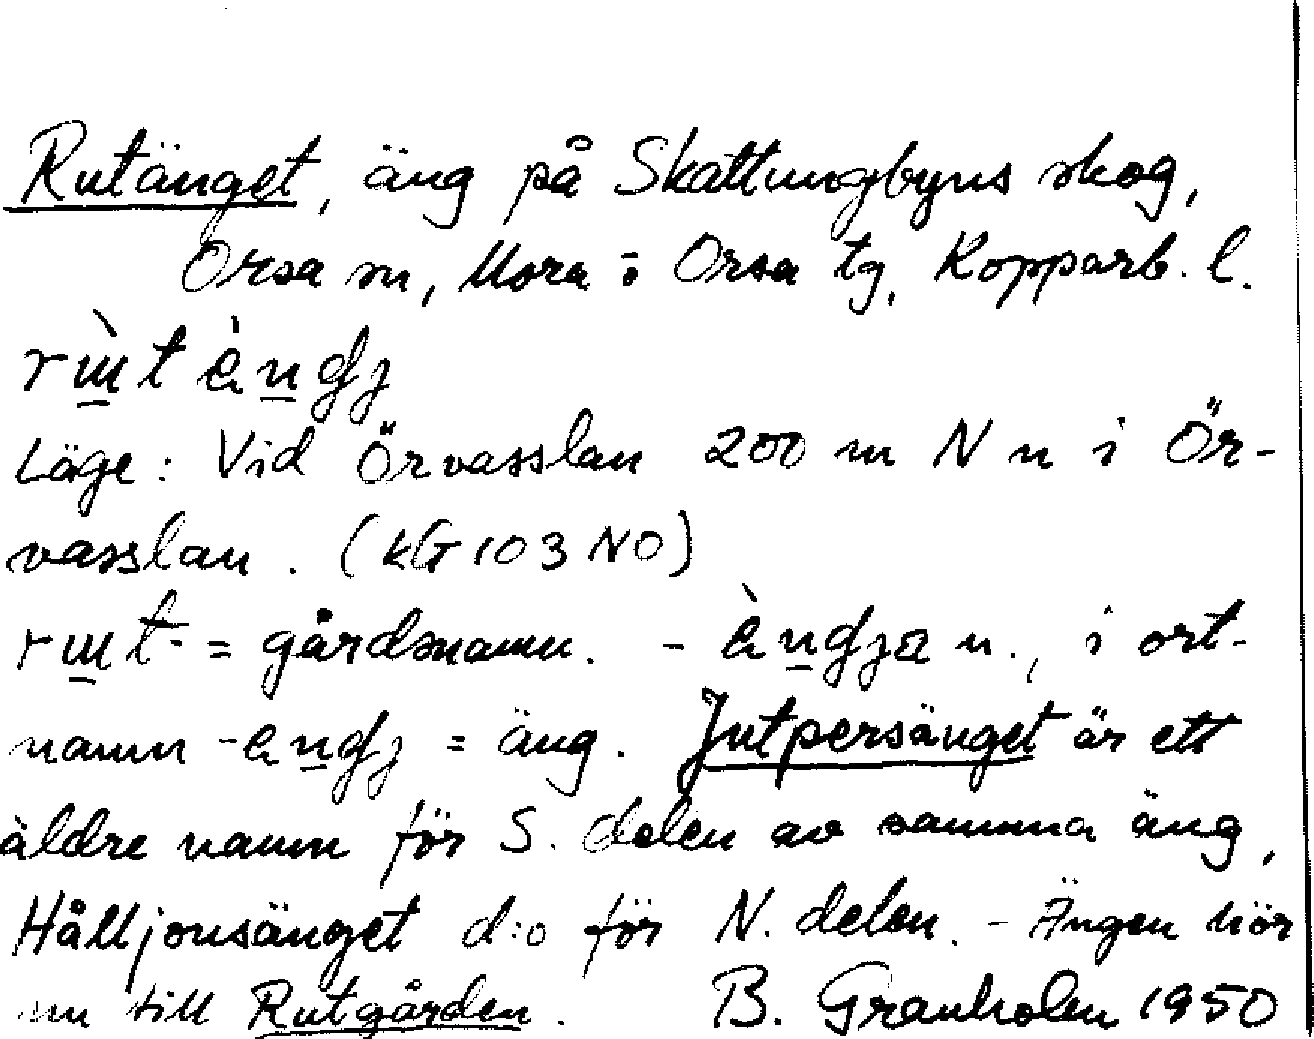 Rutänget, äng på Skattungbyns skog,
Orsa sn, Mora o Orsa tg, Kopparb. l.
rɯ̀t èndj
Läge: Vid Örvasslan 200 m N n i Ör-
vasslan. (kG 103 NO)
rɯt- = gårdsnamn. - èndja n., i ort-
namn -endj = äng. Jutpersänget är ett
äldre namn för S. delen av samma äng,
Hålljonsänget d:o för N. delen. - Ängen hör
nu till Rutgården. B. Granholen 1950